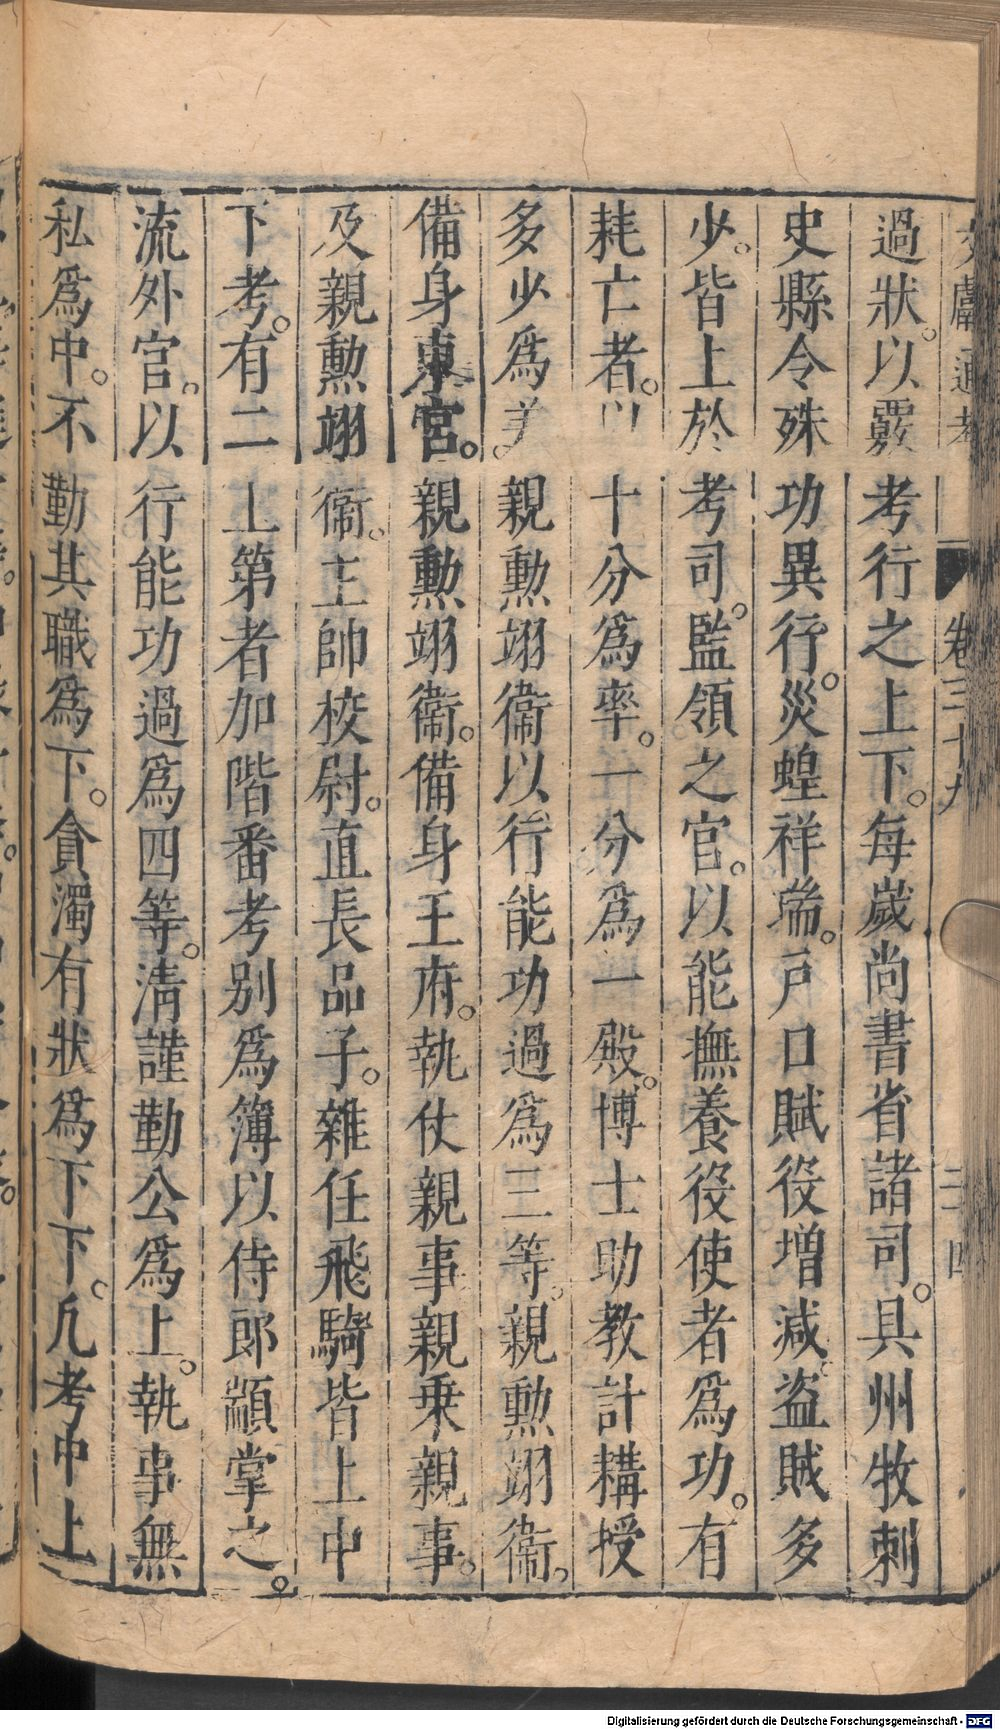 文獻通考 卷三十九 二十四
過狀。以覈考行之上下。每歲尚書省諸司。具州牧刺
史縣令殊功異行。災蝗祥瑞。戸口賦役増減。盗賊多
少。皆上於考司。監領之官。以能撫養役使者爲功。有
耗亡者。以十分爲率。一分爲一殿。博士助教計講授
多少爲差。親勲翊衞以行能功過爲三等。親勲翊衞。
備身東宮。親勲翊衞。備身王府。執仗親事執乗親事。
及親勲翊衞。主帥校尉。直長品子。雜任飛騎皆上中
下考。有二上第者加階番考別爲簿以侍郎顓掌之。
流外官。以行能功過爲四等。清謹勤公爲上。執事無
私爲中。不勤其職爲下。貪濁有狀爲下下。凡考中上
Digitalisierung gefördert durch die Deutsche Forschungsgemeinschaft - DFG